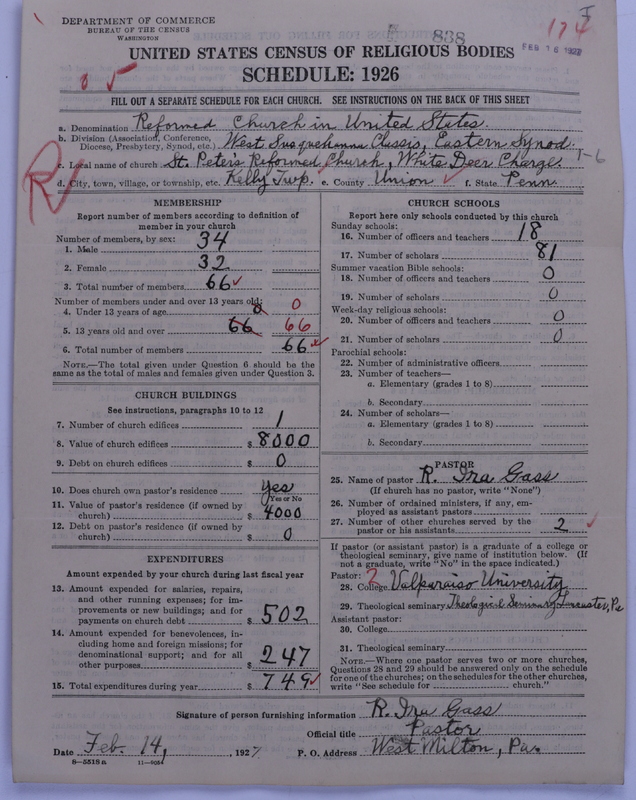 DEPARTMENT OF COMMERCE
BUREAU OF THE CENSUS
WASHINGTON
838
174
FEB 16 1927
UNITED STATES CENSUS OF RELIGIOUS BODIES
SCHEDULE: 1926
FILL OUT A SEPARATE SCHEDULE FOR EACH CHURCH. SEE INSTRUCTIONS ON THE BACK OF THIS SHEET
a. Denomination Reformed Church in United States.
b. Division (Association, Conference, Diocese, Presbytery, Synod, etc.) West Susquehanna Classis, Eastern Synod.
c. Local name of church St. Peters Reformed Church, White Deer Charge
d. City, town, village, or township, etc. Kelly Twp. e. County Union f. State Penn.
MEMBERSHIP
Report number of members according to definition of
member in your church
Number of members, by sex:
1. Male 34
2. Female 32
3. Total number of members 66
Number of members under and over 13 years old:
4. Under 13 years of age 0 0
5. 13 years old and over 66 66
6. Total number of members 66
NOTE.—The total given under Question 6 should be
same as the total of males and females given under Question 3.
CHURCH BUILDINGS
See instructions, paragraphs 10 to 12
7. Number of church edifices 1
8. Value of church edifices $ 8000
9. Debt on church edifices $ 0
10. Does church own pastor's residence yes
Yes or No
11. Value of pastor's residence (if owned by
church) $ 4000
12. Debt on pastor's residence (if owned by
church) $ 0
EXPENDITURES
Amount expended by your church during last fiscal year
13. Amount expended for salaries, repairs,
and other running expenses; for im-
provements or new buildings; and for
payments on church debt $ 502
14. Amount expended for benevolences, in-
cluding home and foreign missions; for
denominational support; and for all
other purposes $ 247
15. Total expenditures during year $ 749
CHURCH SCHOOLS
Report here only schools conducted by this church
Sunday schools:
16. Number of officers and teachers 18
17. Number of scholars 81
Summer vacation Bible schools:
18. Number of officers and teachers 0
19. Number of scholars 0
Week-day religious schools:
20. Number of officers and teachers 0
21. Number of scholars 0
Parochial schools:
22. Number of administrative officers
23. Number of teachers—
a. Elementary (grades 1 to 8)
b. Secondary
24. Number of scholars—
a. Elementary (grades 1 to 8)
b. Secondary
PASTOR
25. Name of pastor R. Ira Gass
(If church has no pastor, write "None")
26. Number of ordained ministers, if any, em-
ployed as assistant pastors
27. Number of other churches served by the
pastor or his assistants 2
If pastor (or assistant pastor) is a graduate of a college or
theological seminary, give name of institution below. (If
not a graduate, write "No" in the space indicated.)
Pastor:
28. College Valparaiso University
29. Theological seminary Theological Seminary Lancaster, Pa
Assistant pastor:
30. College
31. Theological seminary
NOTE.—Where one pastor serves two or more churches,
Questions 28 and 29 should be answered only on the schedule
for one of the churches; on the schedules for the other churches,
write "See schedule for church."
Signature of person furnishing information R. Ira Gass
Official title Pastor
Date Feb. 14, 1927 P. O. Address West Milton, Pa.
8—5518a 11—9054